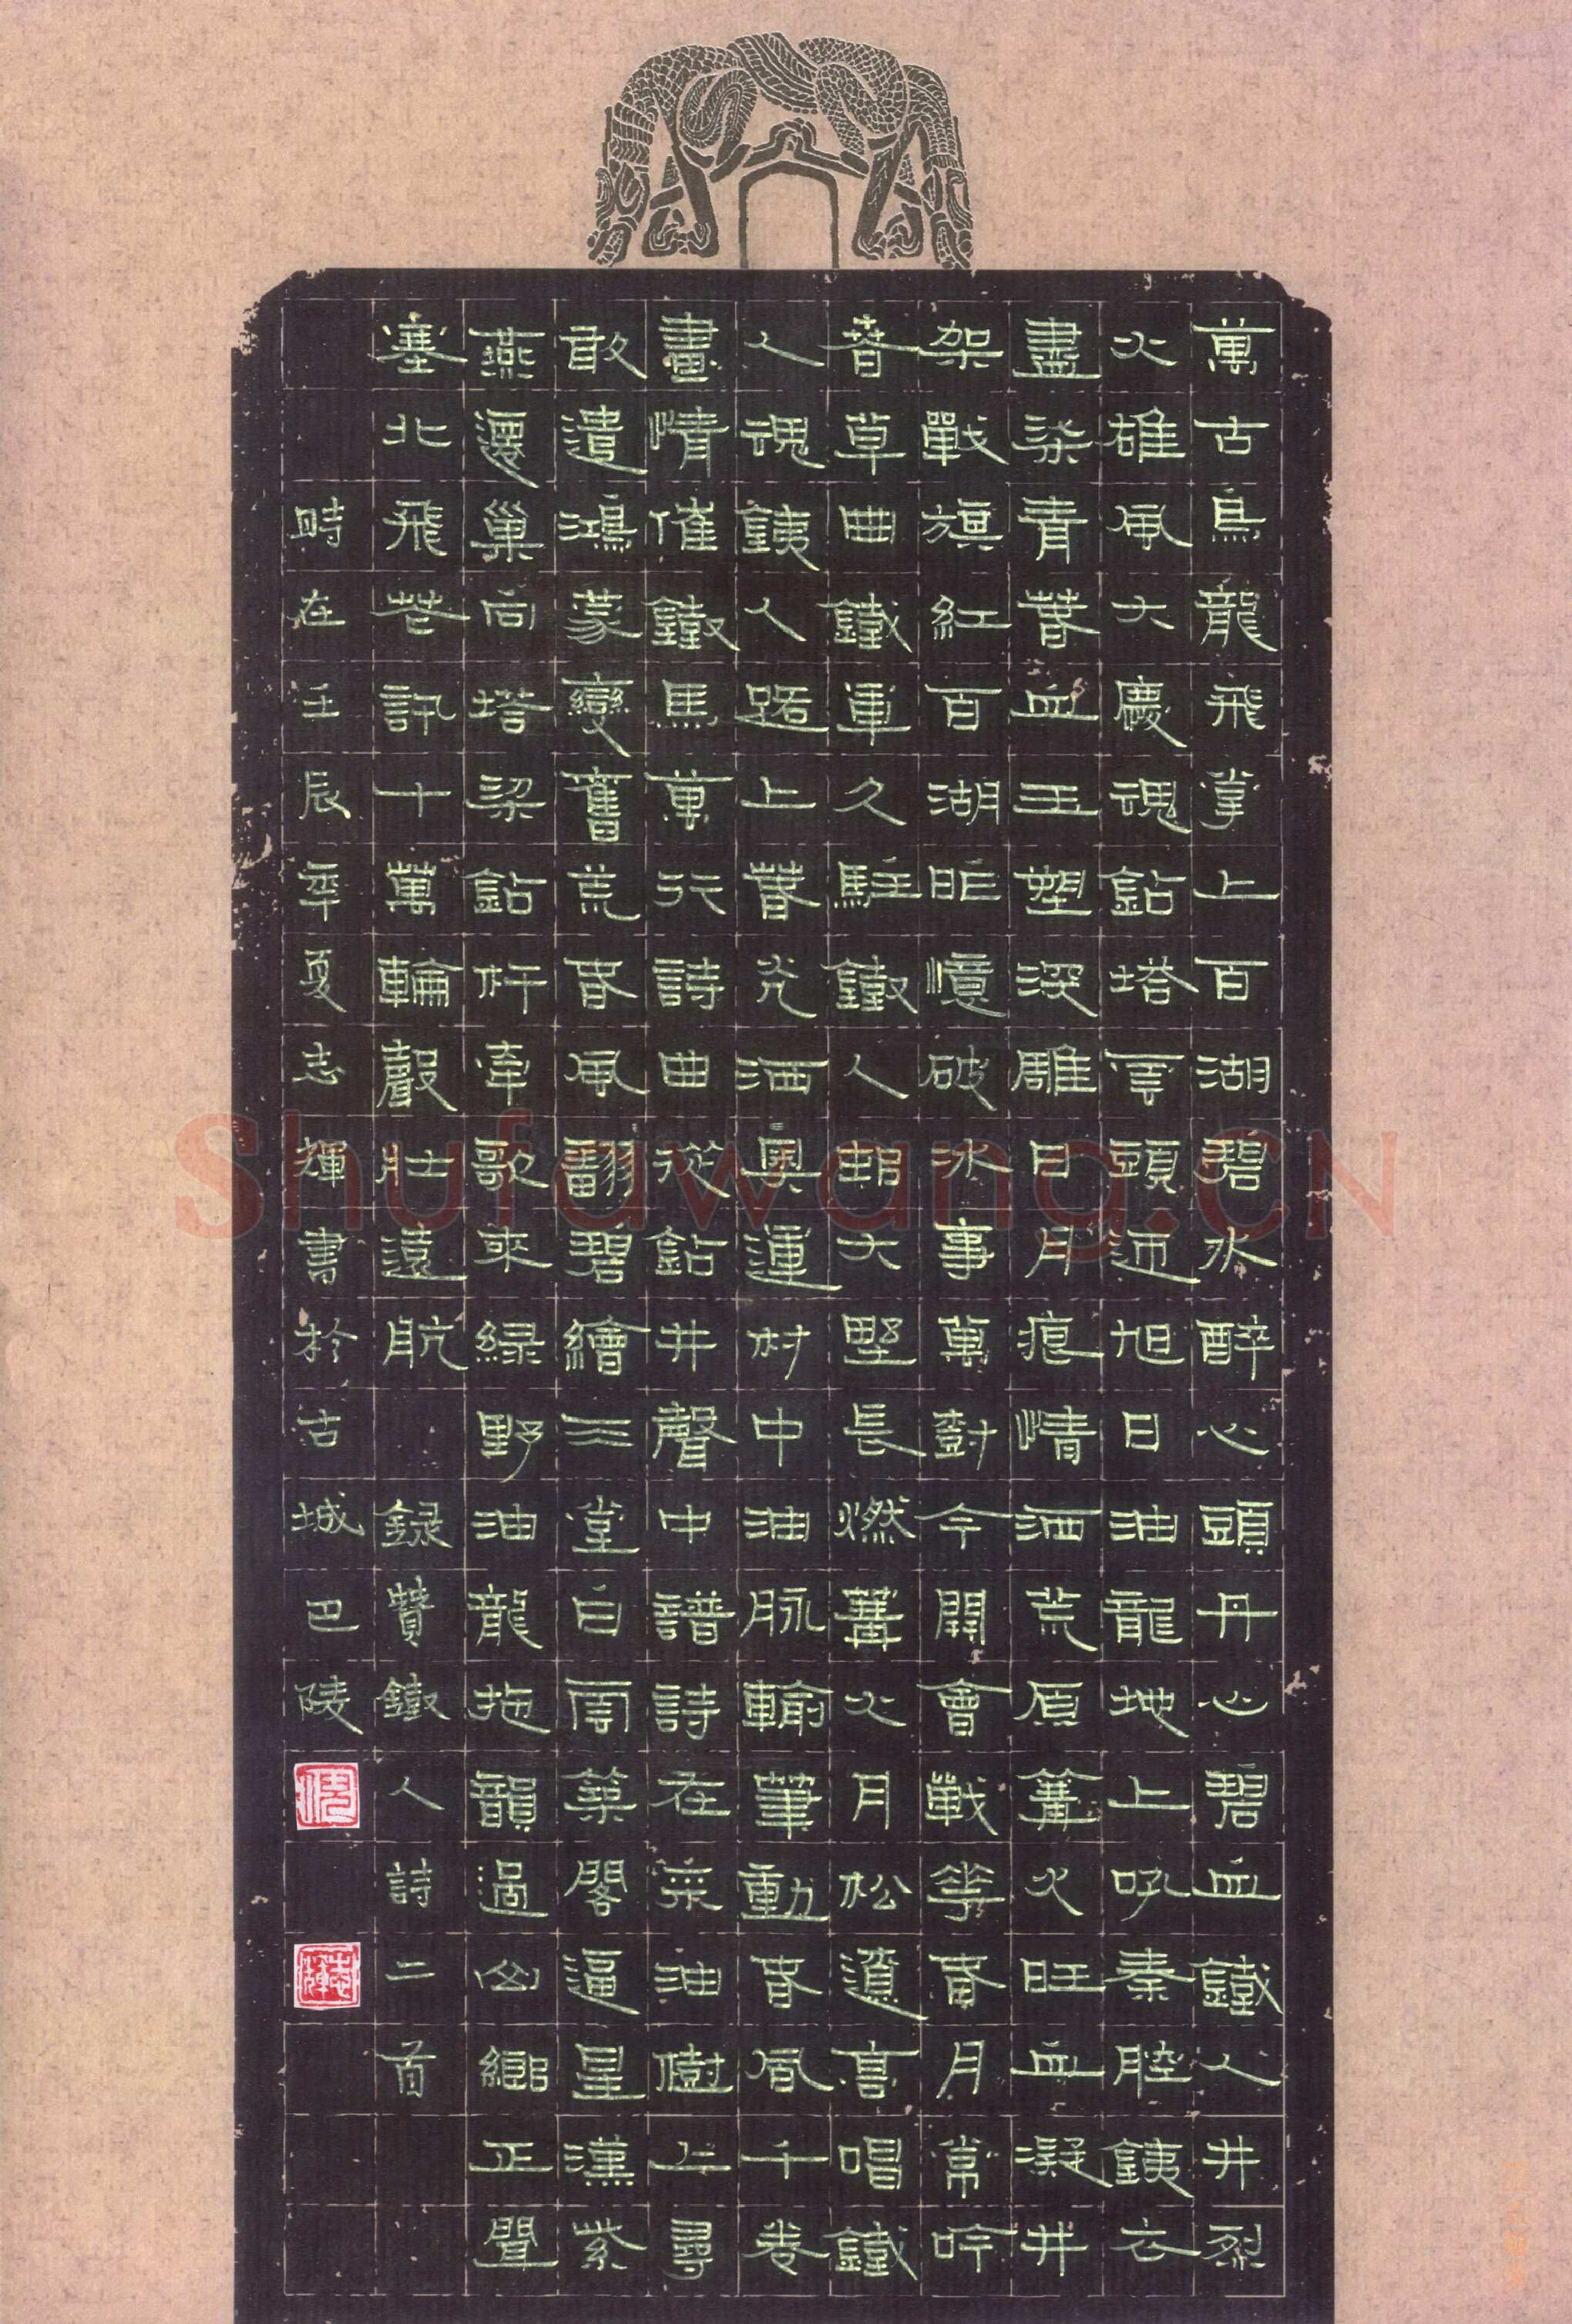 萬古烏龍飛掌上百湖碧水醉心頭丹心碧血鐵人井烈
火雄風大慶魂鉆塔雲頭迎旭日油龍地上吼秦腔銕衣
盡染青春血玉塑深雕日月痕情洒荒原篝火旺血凝井
架戰旗紅百湖昨憶破冰事萬對今開會戰花春月常吟
春草曲鐵軍久駐鐵人邨大野長燃篝火月松遼高唱鐵
人魂銕人踏上春光洒奧運村中油脉輸筆動春風千卷
畫情催鐵馬萬行詩曲從鉆井聲中譜詩在采油樹上尋
敢遣鴻蒙變舊荒春風翻碧繪三堂白雨築閣逼星漢紫
燕還巢向塔梁鉆杆牽歌來綠野油龍拖韻過山鄉正聞
塞北飛花訊十萬輪聲壯遠航 錄贊鐵人詩二首
時在壬辰年夏志輝書於古城巴陵
志輝
Shufawang.CN